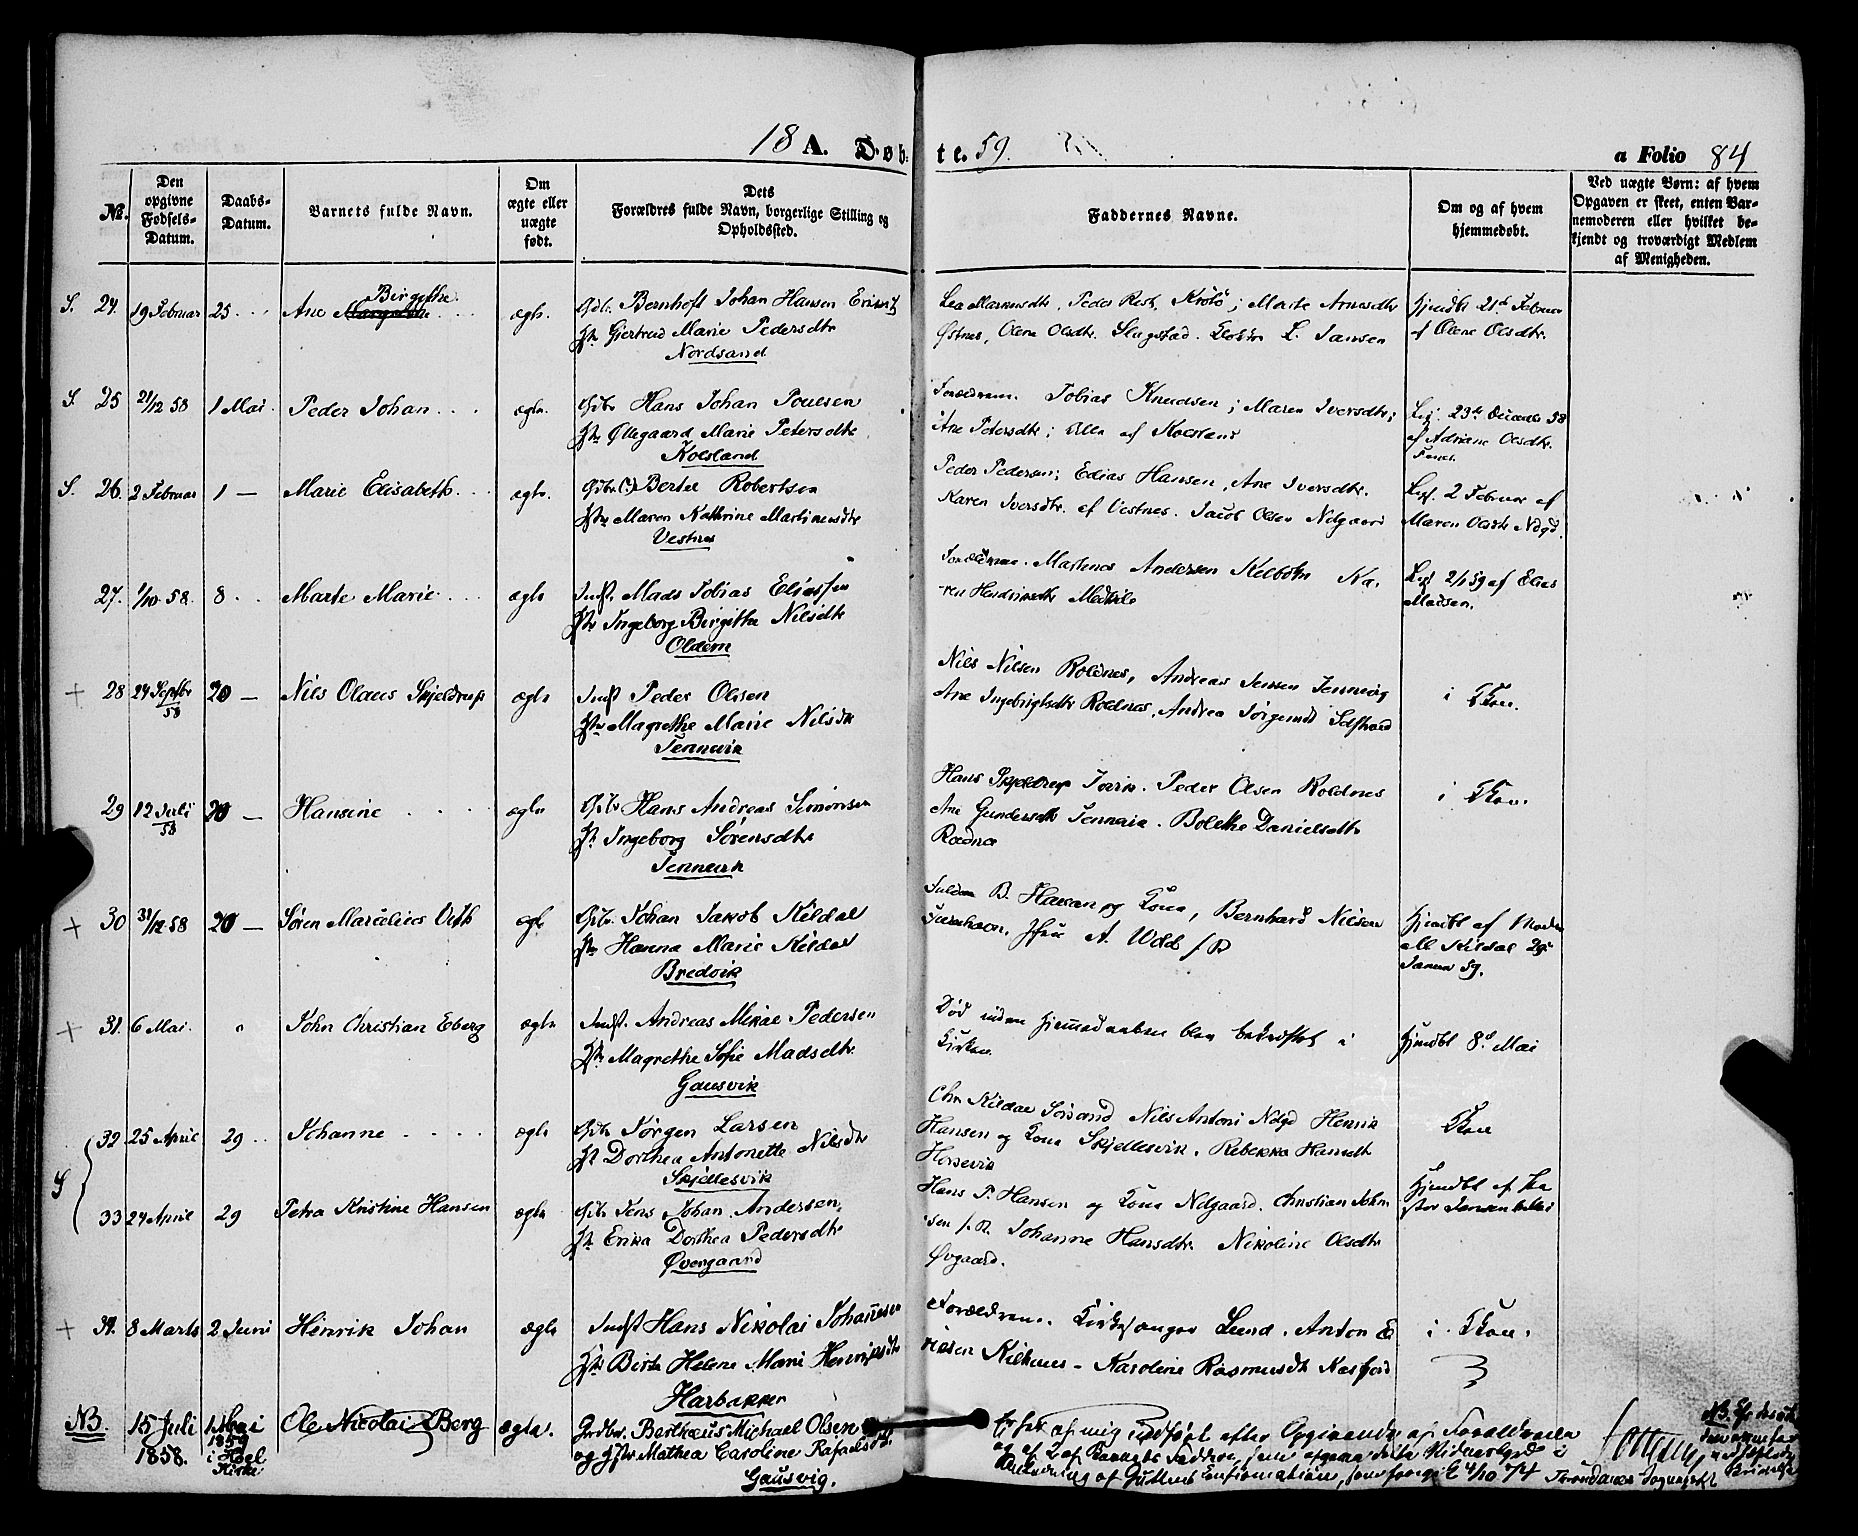 18 A. Døb-
te. 59.
a Folio 84
№.
Den opgivne Fødsels-Datum.
Daabs-Datum.
Barnets fulde Navn.
Om ægte eller uægte født.
Dets Forældres fulde Navn, borgerlige Stilling og Opholdssted.
Faddernes Navne.
Om og af hvem hjemmedøbt.
Ved uægte Børn: af hvem Opgaven er skeet, enten Barnemoderen eller hvilket bekjendt og troværdigt Medlem af Menigheden.
S. 24. 19 Februar 25 Ane Margrethe Birgethe ægte.
Gdbr. Bernhoft Johan Hansen
H. Gjertrud Marie Pedersdtr
Nordsand
Lea Markusdtr, Peder Rist, Krøtø; Marte Arnesdtr
Østnes, Olene Olsdtr. Slugstad. L. Jansen
Hjmdbt 21de Februar
af Olene Olsdtr.
S. 25 21/12 58 1 Mai. Peder Johan ægte.
Gdbr Hans Johan Poulsen
H. Øllegaard Marie Petersdtr
Kolsland
Forældrene. Tobias Knudsen; Maren Iversdtr;
Ane Petersdtr; alle af Kolsland
23de 58
af Adriane Olsdtr.
S. 26. 2 Februar 1 — Marie Elisabeth. ægte.
Gdbr. Berteu Robertsen
Maren Kathrine Martinusdtr
Vestnes
Peder Pedersen; Edias Hansen, Ane Iversdtr.
Karen Iversdtr. af Vestnes. Jacob Olsen Ndgaard
2 Februar af
Maren Olsdtr Ndgd.
27. 1/10 58. 8 Marte Marie ægte
Indst. Mads Tobias Eliassen
Ingeborg Birgithe Nilsdtr
Oldern
Forældrene. Martenes Andersen Kelbotn Ka-
ren Hendriksdtr Medkile
2/1 59 af Elias
Madsen.
+ 28 24 Septbr 58 20 — Nils Olaus Skjeldrup ægte
Indst Peder Olsen
Magrethe Marie Nilsdtr
Tennevik
Nils Nilsen Roldnes, Andreas Jensen Tennevig
Ane Ingebrigtsdtr Roldnes, Andrea Jørgensdt
i Kirken.
29 12 Juli 58 20 — Hansine ægte
Gdbr Hans Andreas Simonsen
H. Ingeborg Sørensdtr
Tennevik
Hans Skjeldrup. Peder Olsen Roldnes
Ane Gundersdtr Tennevik. Bolethe Danielsdtr
i Kirken.
+ 30 31/12 58 20 — Søren Marcelius Veth ægte
Gdbr. Johan Jakob Kildal
H. Hanna Marie Kildal
Bredvik
B. Hansen og Kone, Bernhard Nilsen
A. Wold
Hjmdbt af Madam
Kildal 29
Januar 59.
+ 31. 6 Mai. " John Christian Eberg ægte
Indst. Andreas Mikal Pedersen
Magrethe Sofie Madsdtr.
Gausvik
Død inden Hjemmedaaben blev bekræftet i
Kirken.
Hjmdbt 8de Mai
S
32. 25 April 29 Johanne ægte
Gdbr Jørgen Larsen
H. Dorthea Antonette Nilsdtr
Skjellesvik
Chr. Kildal Sørsand Nils Antoni Ndgd Henrik
Hansen og Kone Skjellesvik. Rebekka Hansdt
Horsevik
Kirken
33 24 April 29 Petra Kristine Hansen ægte
Gdbr Jens Johan Andersen,
H. Erika Dorthea Pedersdtr
Øvergaard
Hans P. Hansen og Kone Ndgaard. Christian Johan-
sen. Johanne Hansdtr. Nikoline Olsdtr
Øvgaard.
Hjmdbt af
Jansen
+ 34. 8 Marts 2 Juni Henrik Johan ægte
Indst Hans Nikolai Johannesen
Birte Helene Marie Henriksdtr
Harbakken
Forældrene. Kirkesanger Lund. Anton E-
riksen Kilhus - Karoline Rasmusdt Kasfjord
i Kirken.
NB. 15 Juli 1858. 1 Mai 1859 i Hol Kirke
Ole Nicolai Berg ægte.
Grdbr. Berthæus Michael Olsen
og Hstr Mathea Caroline Rafaelsdtr.
Gausvig.
Er her af mig indført efter Opgivende af Forældrene
og af 2 af Barnets Faddere, som afgave dette Vidnesbyrd i
Anledning af Guttens Confirmation, som foregik 4/10 74
Trondenæs Sogne
NB.